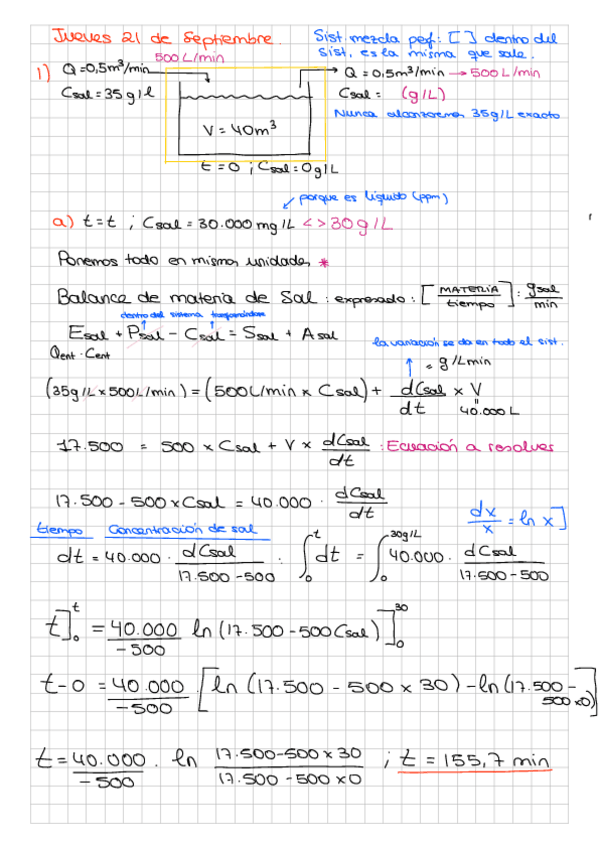 Jueves 21 de Septiembre.
Sist. mezcla perf: [ ] dentro del
sist. es la misma que sale.
500 L/min
1) Q=0,5m³/min
Csal=35 g/l
Q = 0,5m³/min → 500L/min
Csal= (g/L)
Nunca alcanzaremos 35g/L exacto
V = 40m³
t=0 ; Csal=0g/L
porque es líquido (ppm)
a) t=t ; Csal = 30.000 mg/L <> 30 g/L
Ponemos todo en mismas unidades *
Balance de materia de Sal : expresado : [MATERIA/tiempo] : gsal/min
dentro del sistema
Esal + Psal - Csal = Ssal + Asal
Qent · Cent
la variación se da en todo el sist.
= g/Lmin
(35g/L x 500L/min) = (500L/min x Csal) + dCsal/dt x V
40.000 L
17.500 = 500 x Csal + V x dCsal/dt : Ecuación a resolver
17.500 - 500 x Csal = 40.000 · dCsal/dt
dx/x = ln x]
tiempo Concentración de sal
dt = 40.000 · dCsal/17.500-500 : ∫₀ᵗ dt = ∫₀³⁰ᵍ/ᴸ 40.000 · dCsal/17.500-500
t]₀ᵗ = 40.000/-500 ln (17.500-500Csal)]₀³⁰
t-0 = 40.000/-500 [ln (17.500 - 500 x 30) - ln(17.500 - 500x0)]
t = 40.000/-500 · ln 17.500-500 x 30/17.500-500 x 0 ; t = 155,7 min